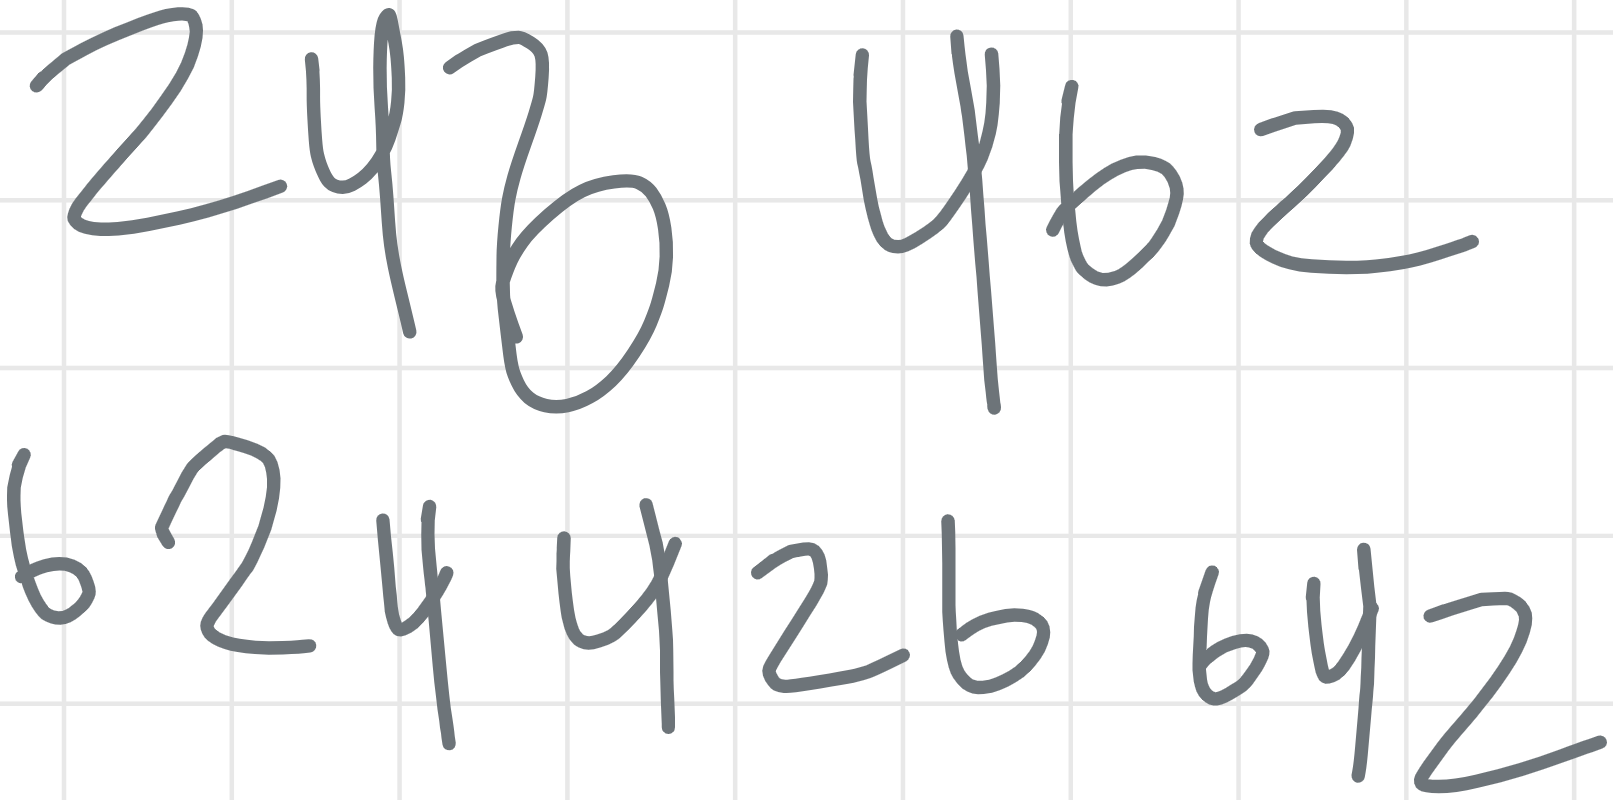 246 462
624 426 642